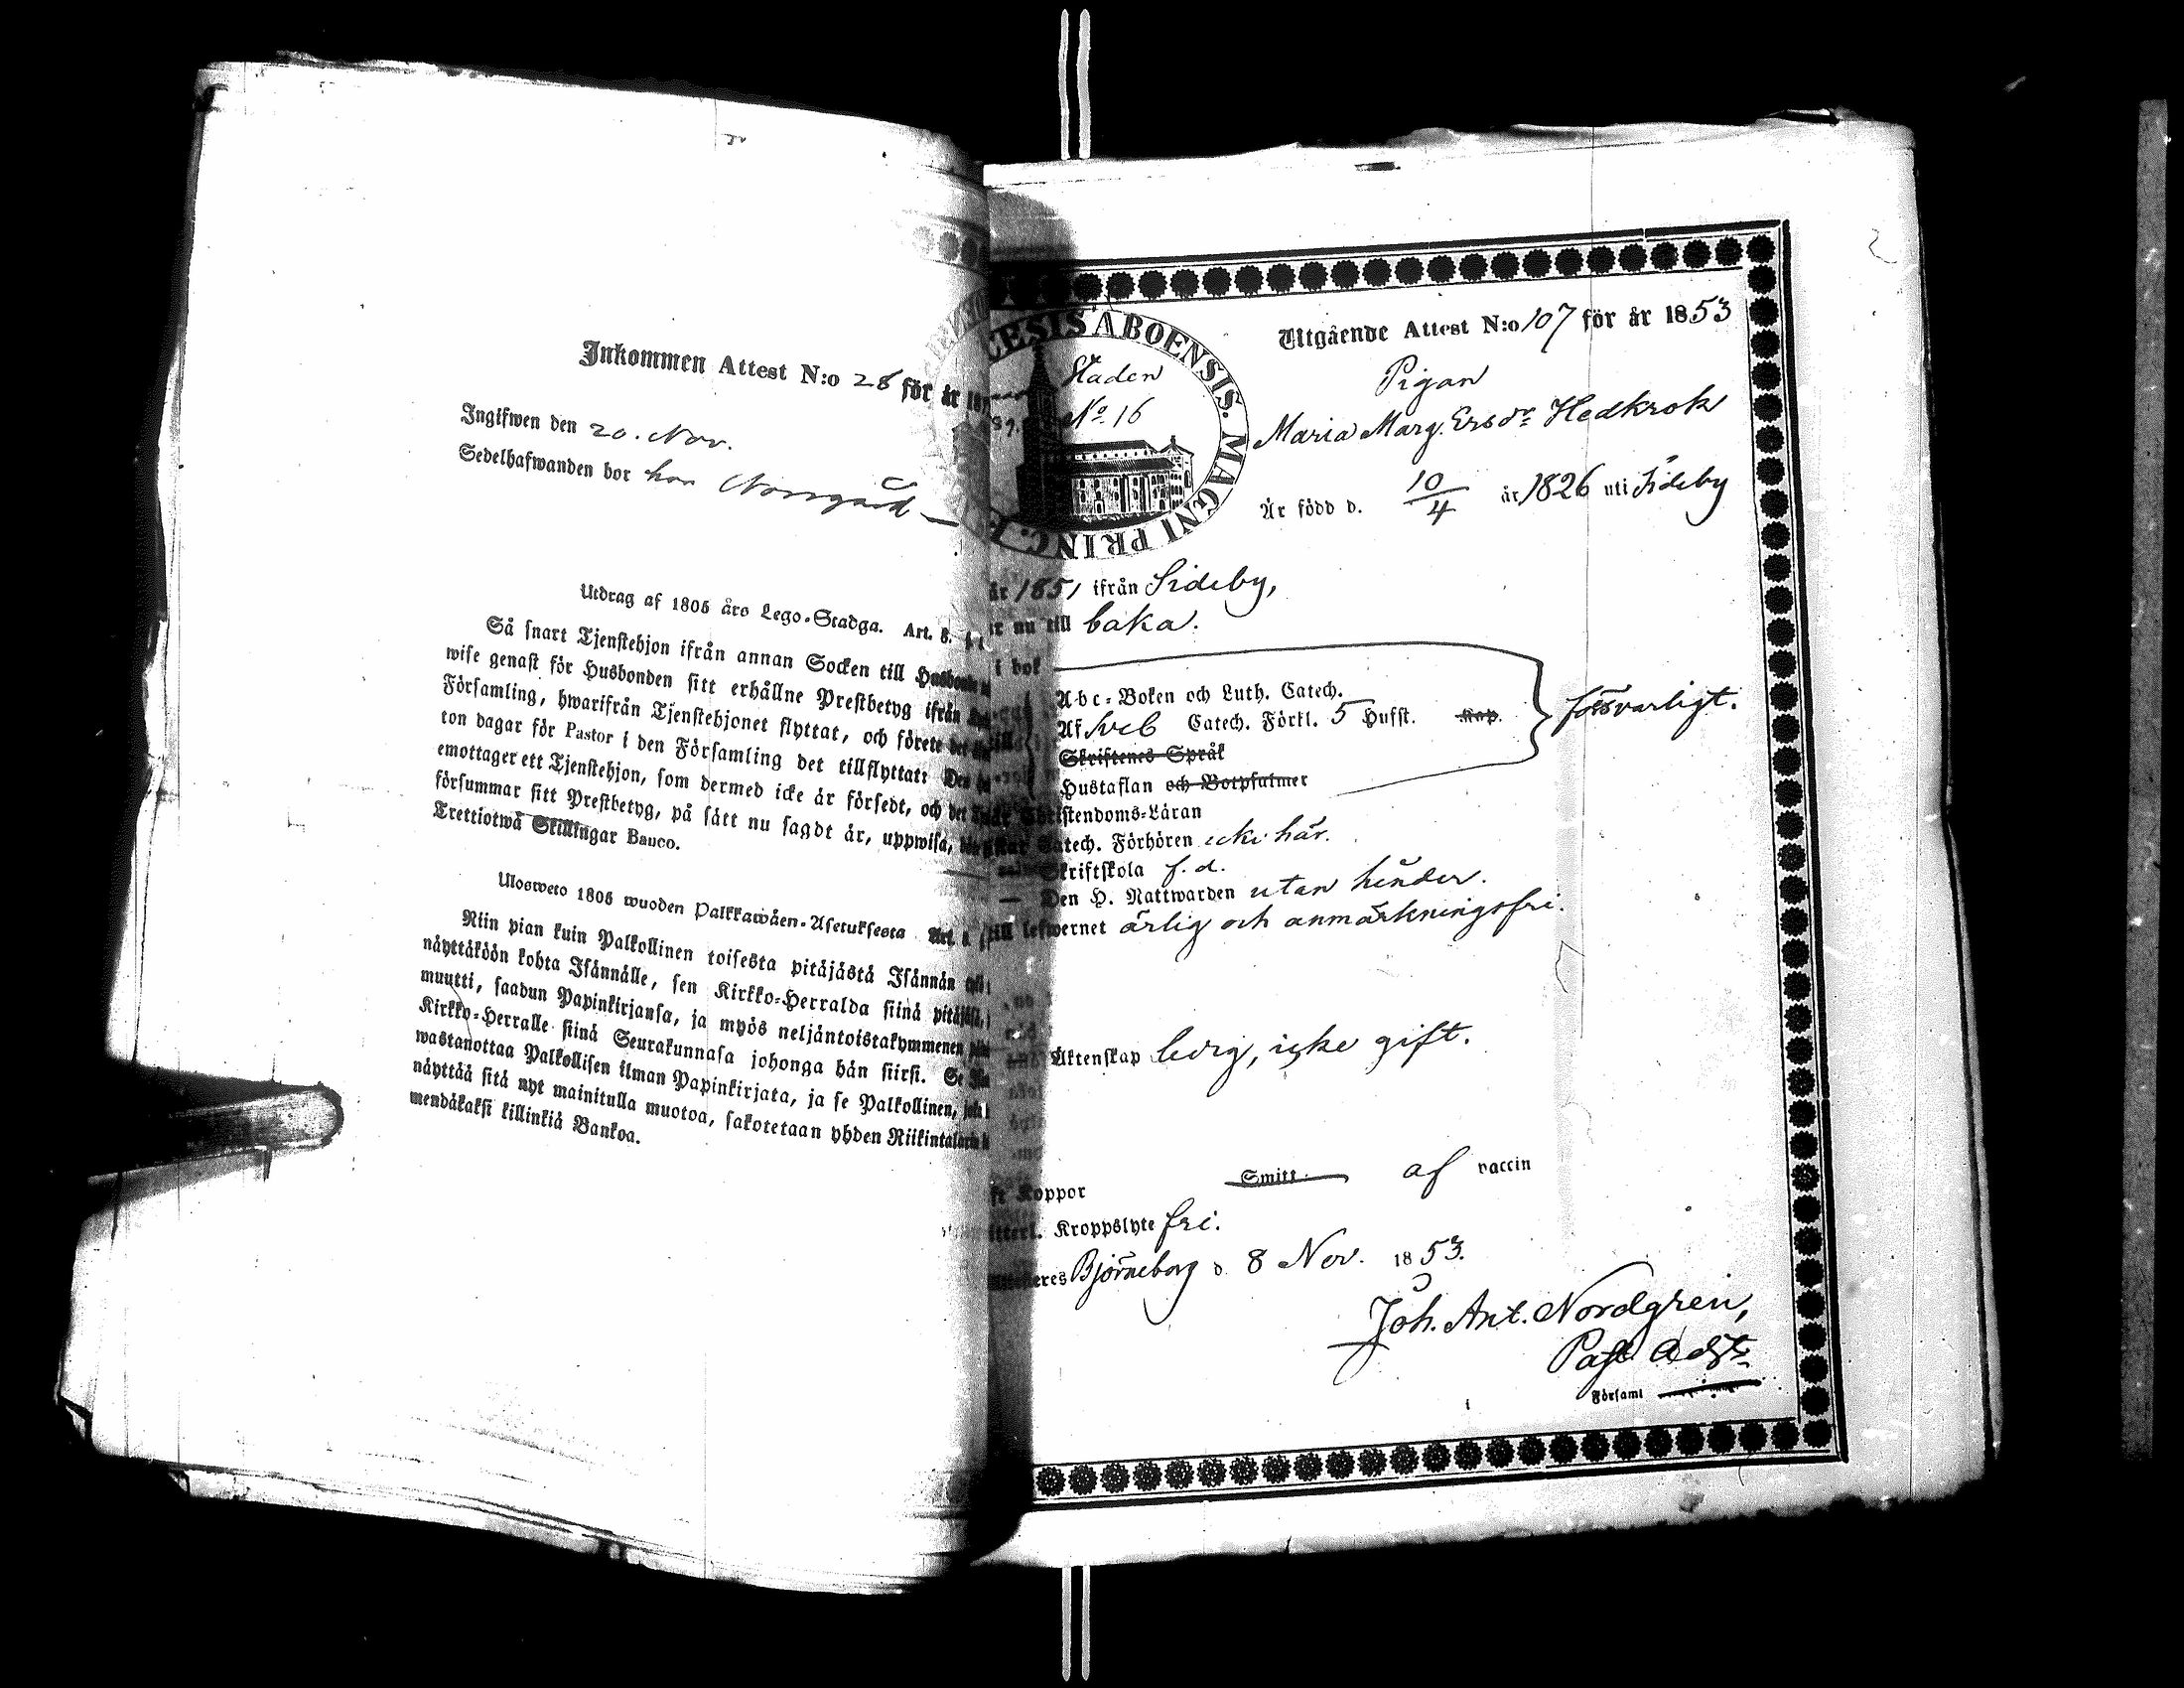 Inkommen Attest N:o 28 för år 18
Ingifwen den 20. Nov.
Sedelhafwanden bor hos Norrgård —
Utdrag af 1805 års Lego-Stadga. Art. 8.
Så snart Tjenstehjon ifrån annan Socken till
wise genast för Husbonden sitt erhållne Prestbetyg ifrån
Församling, hwarifrån Tjenstehjonet flyttat, och förete det
ton dagar för Pastor i den Församling det tillflyttat: Den
emottager ett Tjenstehjon, som dermed icke är försedt, och det
försummar sitt Prestbetyg, på sätt nu sagdt är, uppwisa,
Trettiotwå Skillingar Banco.
Ulosweto 1805 wuoden Palkkawäen-Asetuksesta Art.
Niin pian kuin Palkollinen toisesta pitäjästä Isännän
näyttäköön kohta Isännälle, sen Kirkko-Herralda siinä pitäjäsä,
muutti, saadun Papinkirjansa, ja myös neljäntoistakymmenen
Kirkko-Herralle siinä Seurakunnasa johonga hän siirsi. Se
wastanottaa Palkollisen ilman Papinkirjata, ja se Palkollinen,
näyttää sitä nyt mainitulla muotoa, sakotetaan yhden Riikintalarin
mendäkaksi killinkiä Bankoa.
CESIS ABOENSIS. MAGNI PRINC. F
Staden
No. 16
Utgående Attest N:o 107 för år 1853
Pigan
Maria Marg. Ersdr Hedkrok
Är född d. 10/4 år 1826 uti Sideby
år 1851 ifrån Sideby,
nu till baka.
i bok
Abc-Boken och Luth. Catech.
Af Sveb Catech. Förkl. 5 Hufst. Kap.
försvarligt.
Skriftenes Språk
Hustaflan och Botpsalmer
Christendoms-Läran
Catech. Förhören icke här.
Skriftskola f. d.
— Den H. Nattwarden utan hinder.
till lefwernet ärlig och anmärkningsfri.
Äktenskap ledig, icke gift.
Koppor Smitt af vaccin
Kroppslyte fri.
Björneborg d. 8 Nov. 1853.
Joh. Ant. Nordgren,
Past. Adj.
Församl